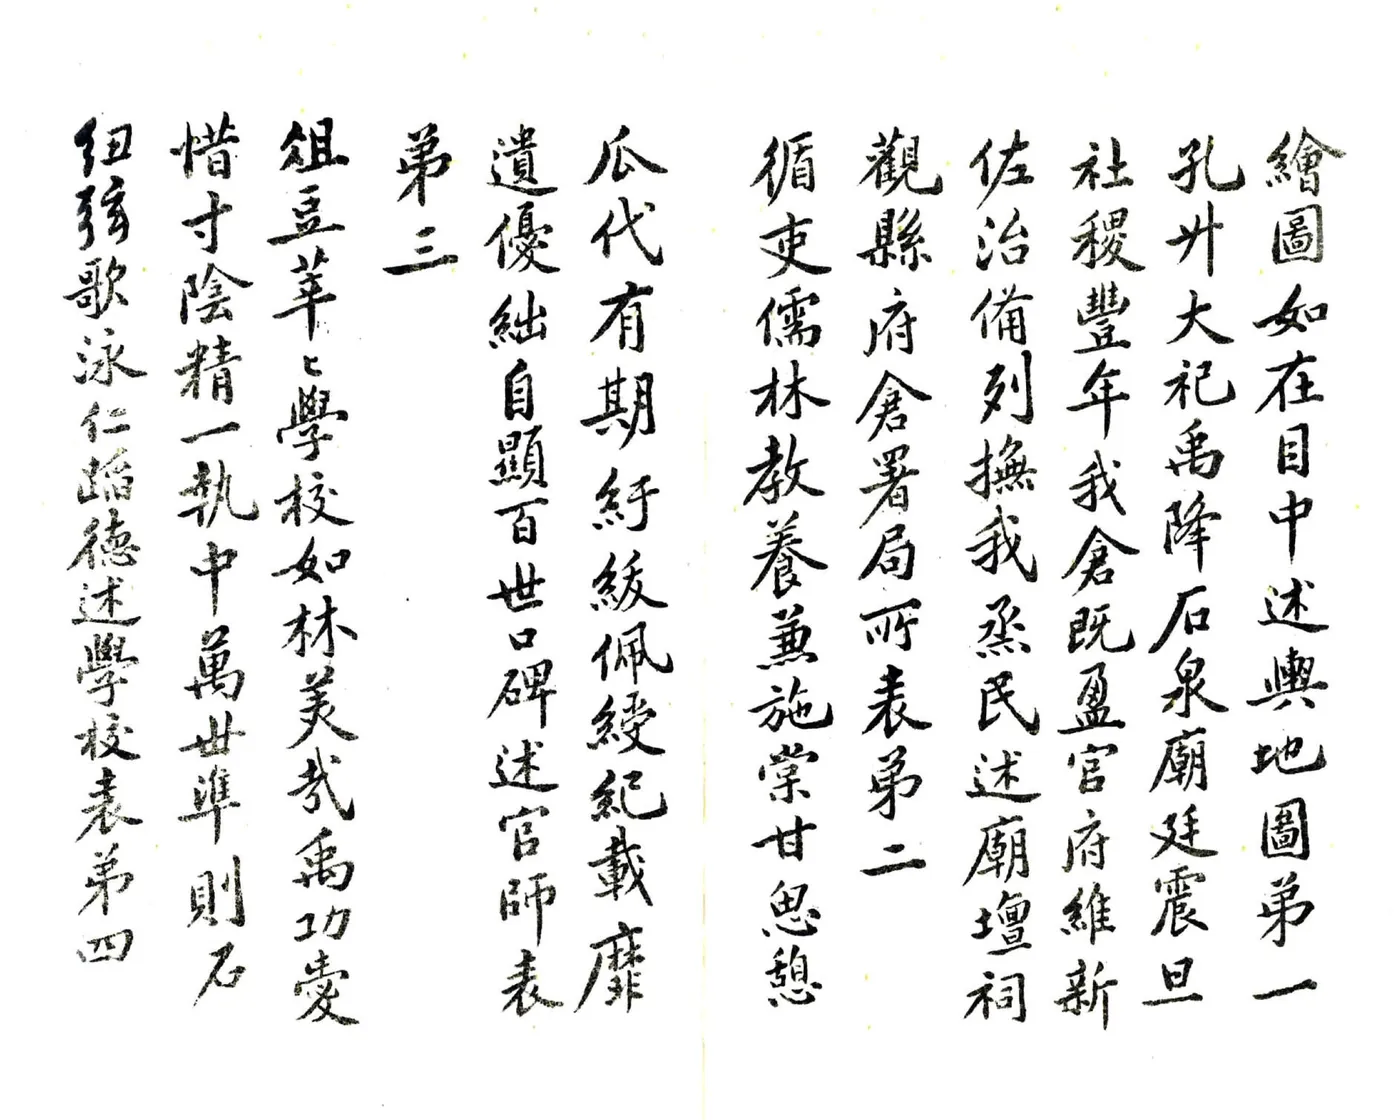 繪圖如在目中述輿地圖弟一
孔廾大祀禹降石泉廟廷震旦
社稷豐年我倉既盈官府維新
佐治備列撫我烝民述廟壇祠
觀縣府倉署局所表弟二
循吏儒林教養兼施棠甘思憩
瓜代有期紆緩佩綬紀載靡
遺優絀自顯百世口碑述官師表
弟三
俎豆莘〻學校如林美哉禹功愛
惜寸陰精一執中萬世準則石
紐弦歌泳仁蹈德述學校表弟四